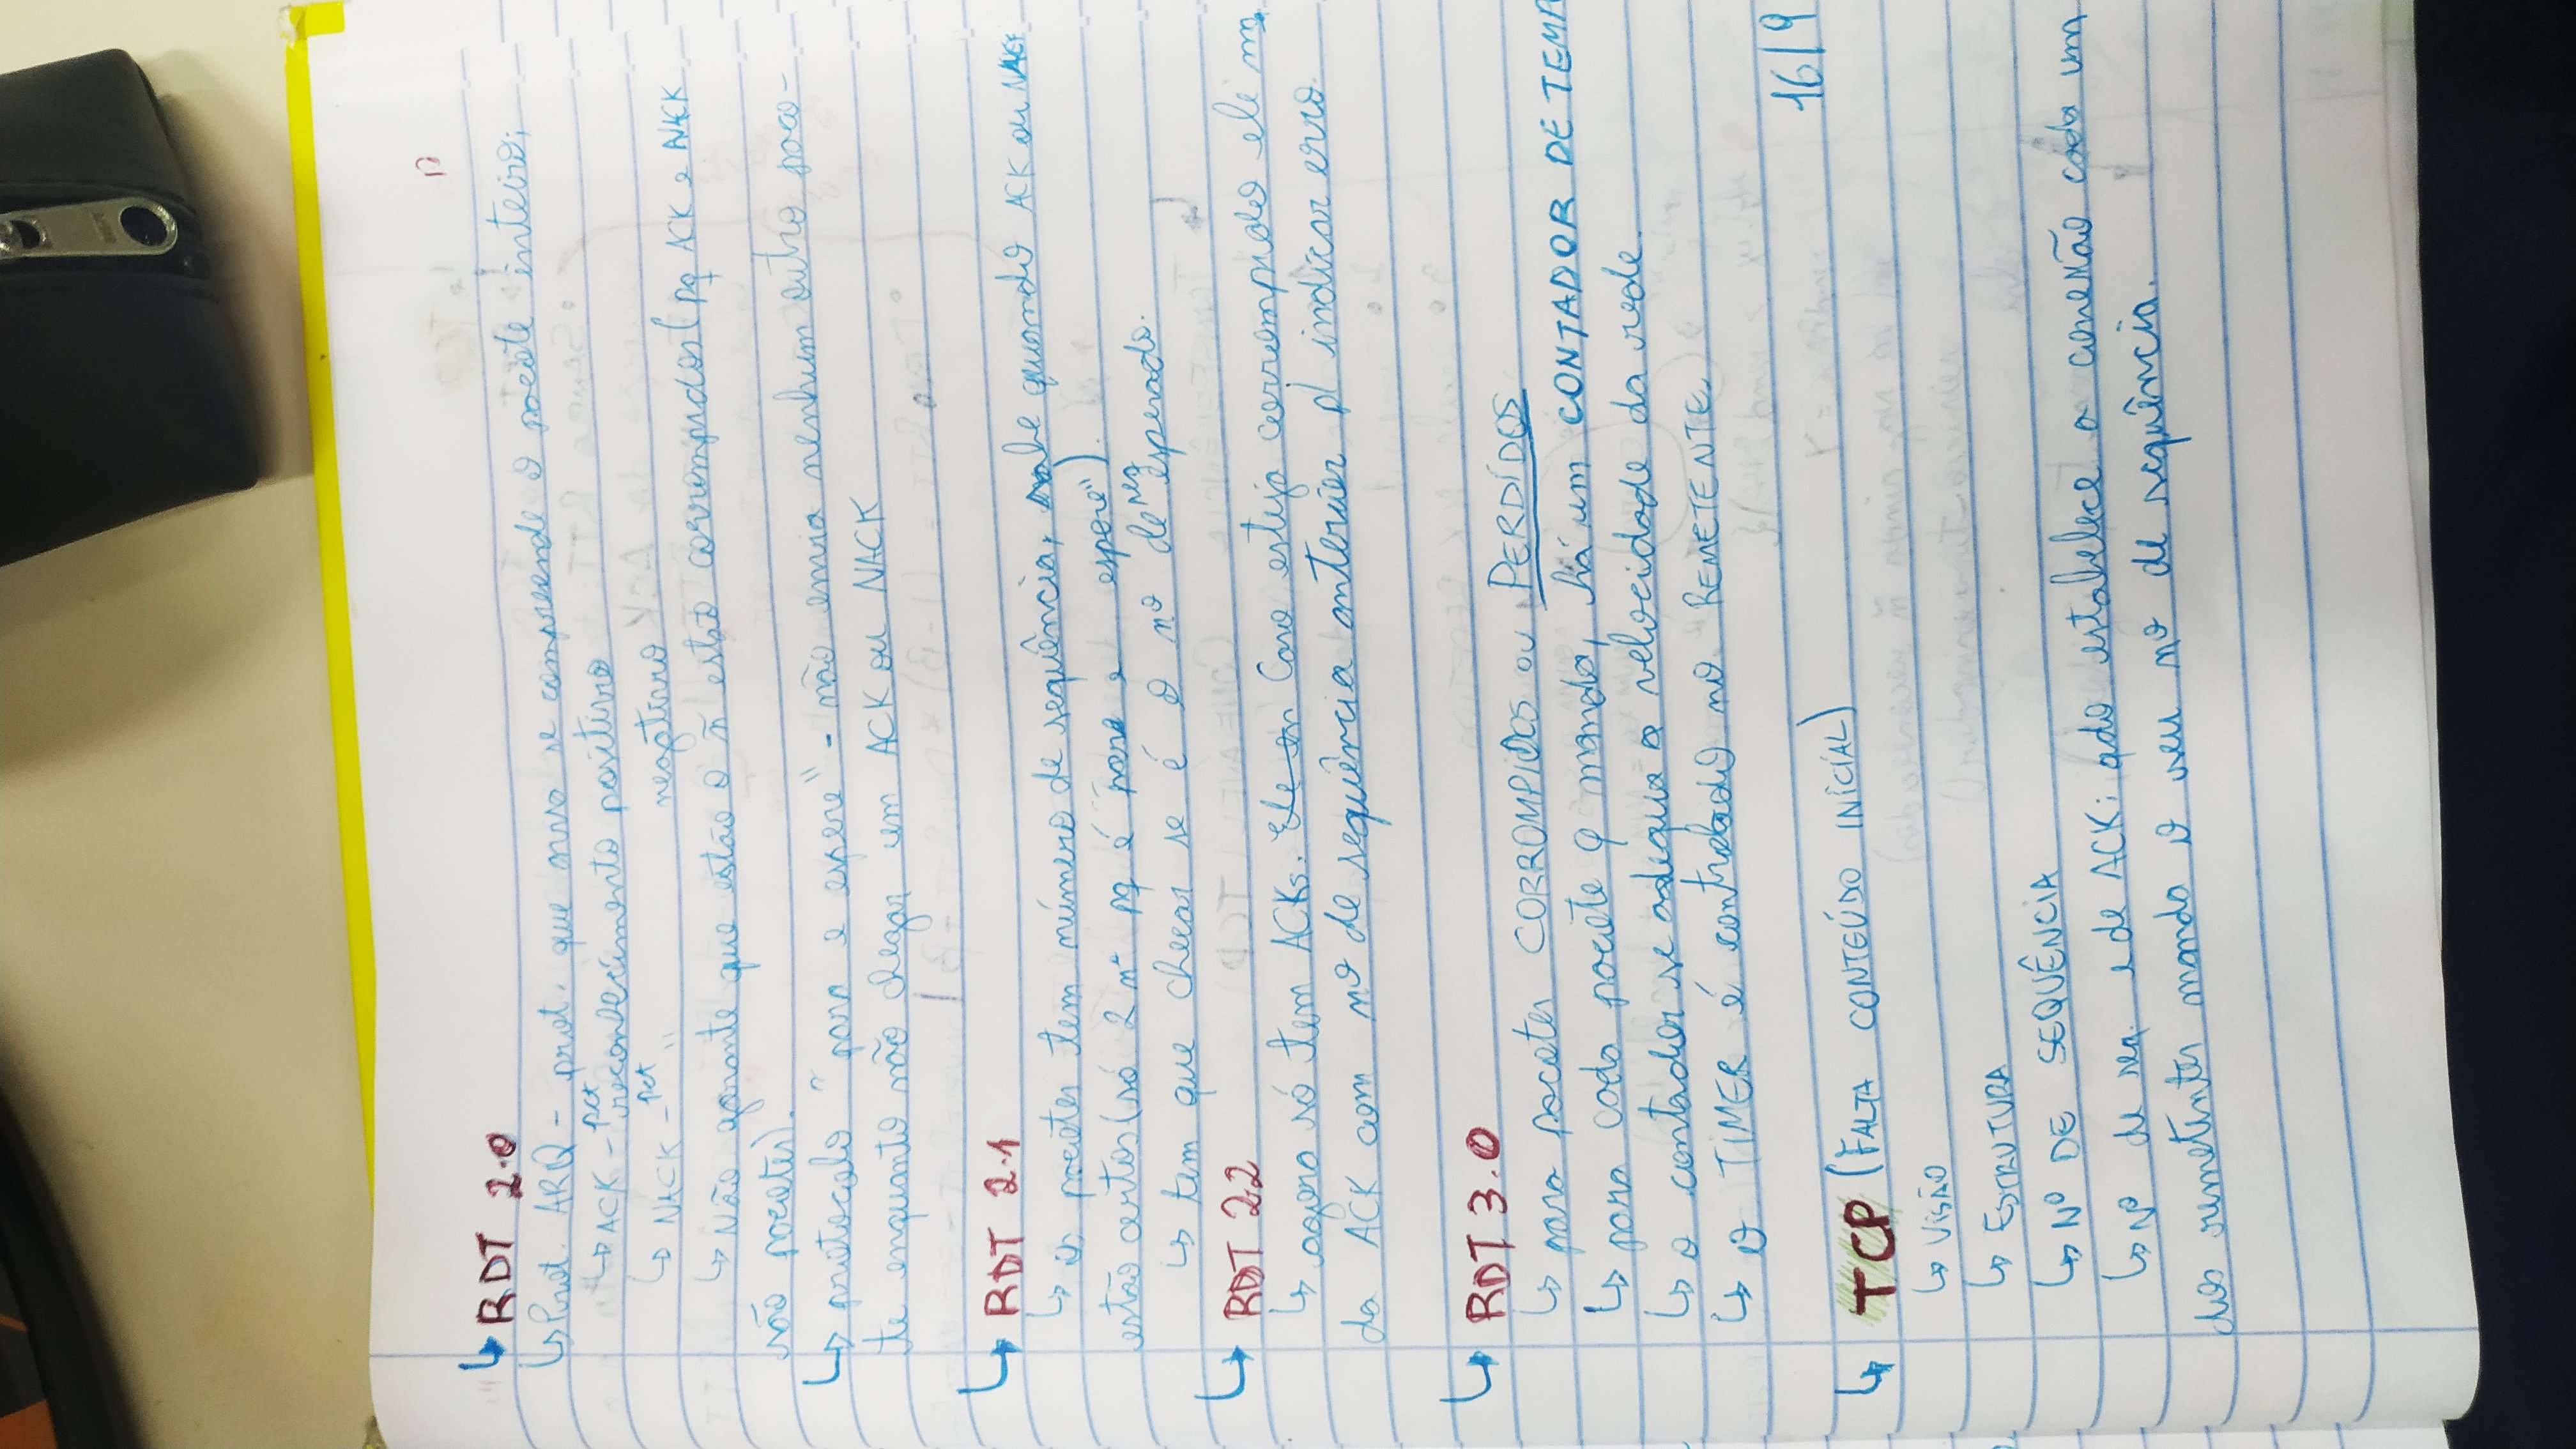 ↳ RDT 2.0
↳ Prot. ARQ - prot. que se compreende o pacote inteiro;
↳ ACK - pct reconhecimento positivo
↳ NACK - pct " negativo
↳ Não garante que estão o ñ estão corrompidos (pq ACK e NACK
são pacotes).
↳ protocolo "para e espere" - não envia nenhum outro paco-
te enquanto não chegar um ACK ou NACK
↳ RDT 2.1
↳ os pacotes tem número de sequência, sabe quando ACK ou NACK
estão certos (só 2 nº pq é "para e espere").
↳ tem que checar se é o nº de seq esperado.
↳ RDT 2.2
↳ agora só tem ACKs. Caso esteja corrompido ele man
da ACK com nº de sequência anterior p/ indicar erro.
↳ RDT 3.0
↳ para pacotes CORROMPIDOS ou PERDIDOS
↳ para cada pacote q manda, há um CONTADOR DE TEMP
↳ o contador se adequa a velocidade da rede.
↳ o TIMER é controlado no REMETENTE.
16/9
↳ TCP (FALTA CONTEÚDO INICIAL)
↳ VISÃO
↳ ESTRUTURA
↳ Nº DE SEQUÊNCIA
↳ Nº de seq. e de ACK: qdo estabelece a conexão cada um
dos remetentes manda o seu nº de sequência.